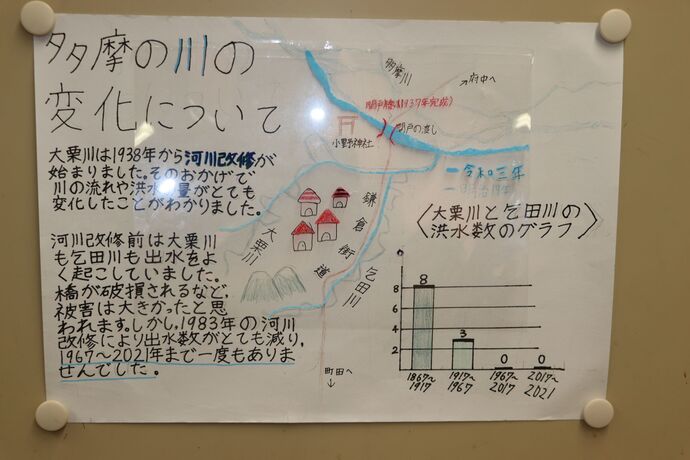 多摩の川の
変化について
大栗川は1938年から河川改修が
始まりました。そのおかげで
川の流れや洪水量がとても
変化したことがわかりました。
河川改修前は大栗川
も乞田川も出水をよ
く起こしていました。
橋が破損されるなど、
被害は大きかったと思
われます。しかし、1983年の河川
改修により出水数がとても減り、
1967〜2021年まで一度もありま
せんでした。
多摩川
府中へ
関戸橋(1937年完成)
関戸の渡し
小野神社
令和三年
鎌倉街道
大栗川
乞田川
町田へ
〈大栗川と乞田川の
洪水数のグラフ〉
8
6
4
2
8
3
0
0
1867〜
1917
1917〜
1967
1967〜
2017
2017〜
2021